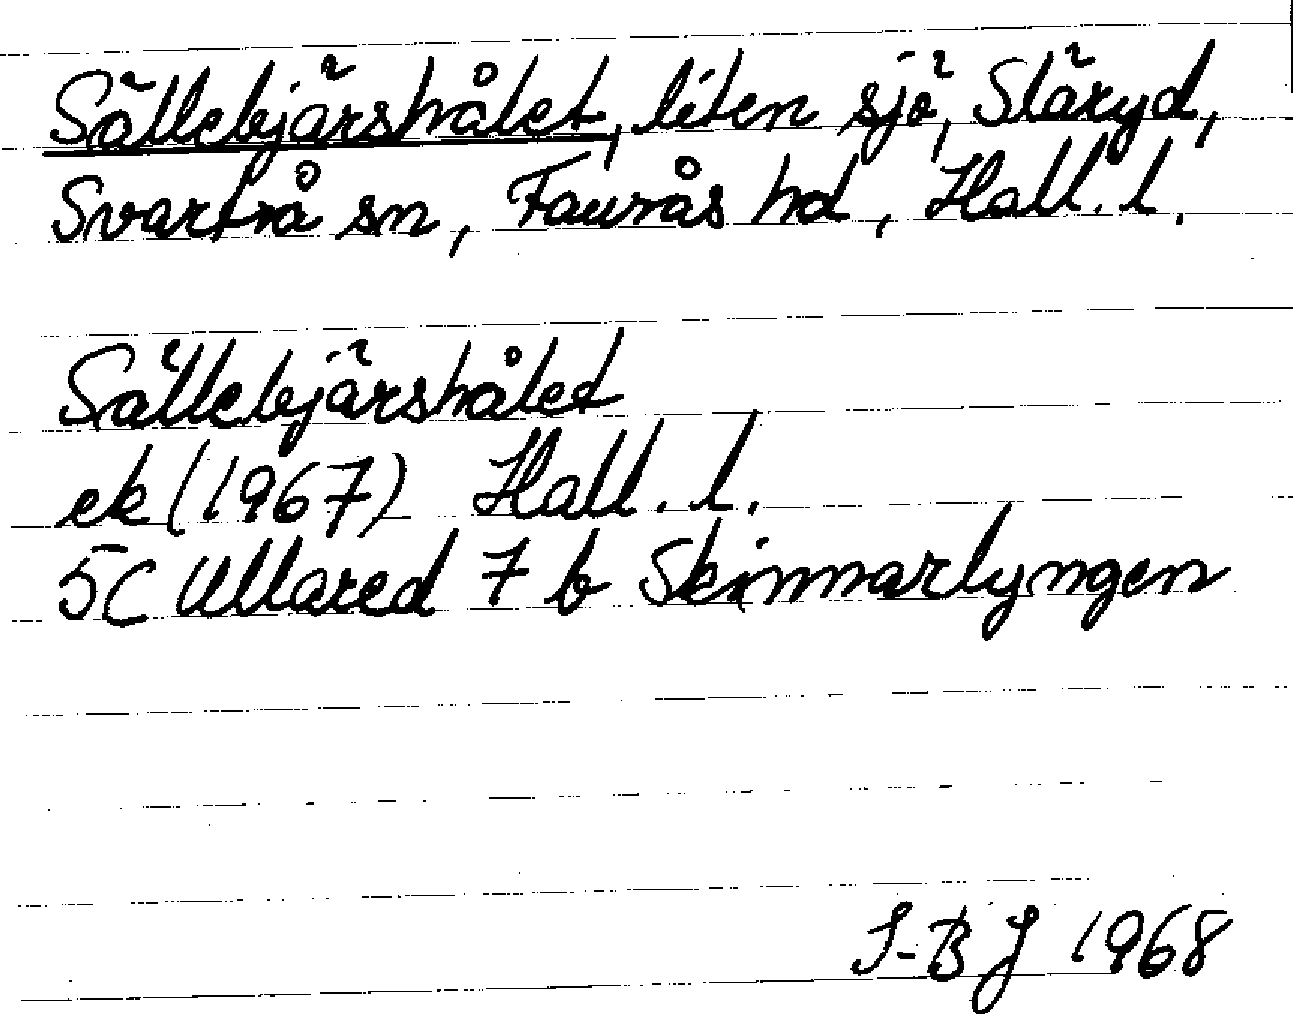 Sällebjärshålet, liten sjö, Släryd,
Svartrå sn, Faurås hd, Hall. l.
Sällebjärshålet
ek (1967) Hall. l.
5C Ullared 7 b Skinnarlyngen
I-BJ 1968